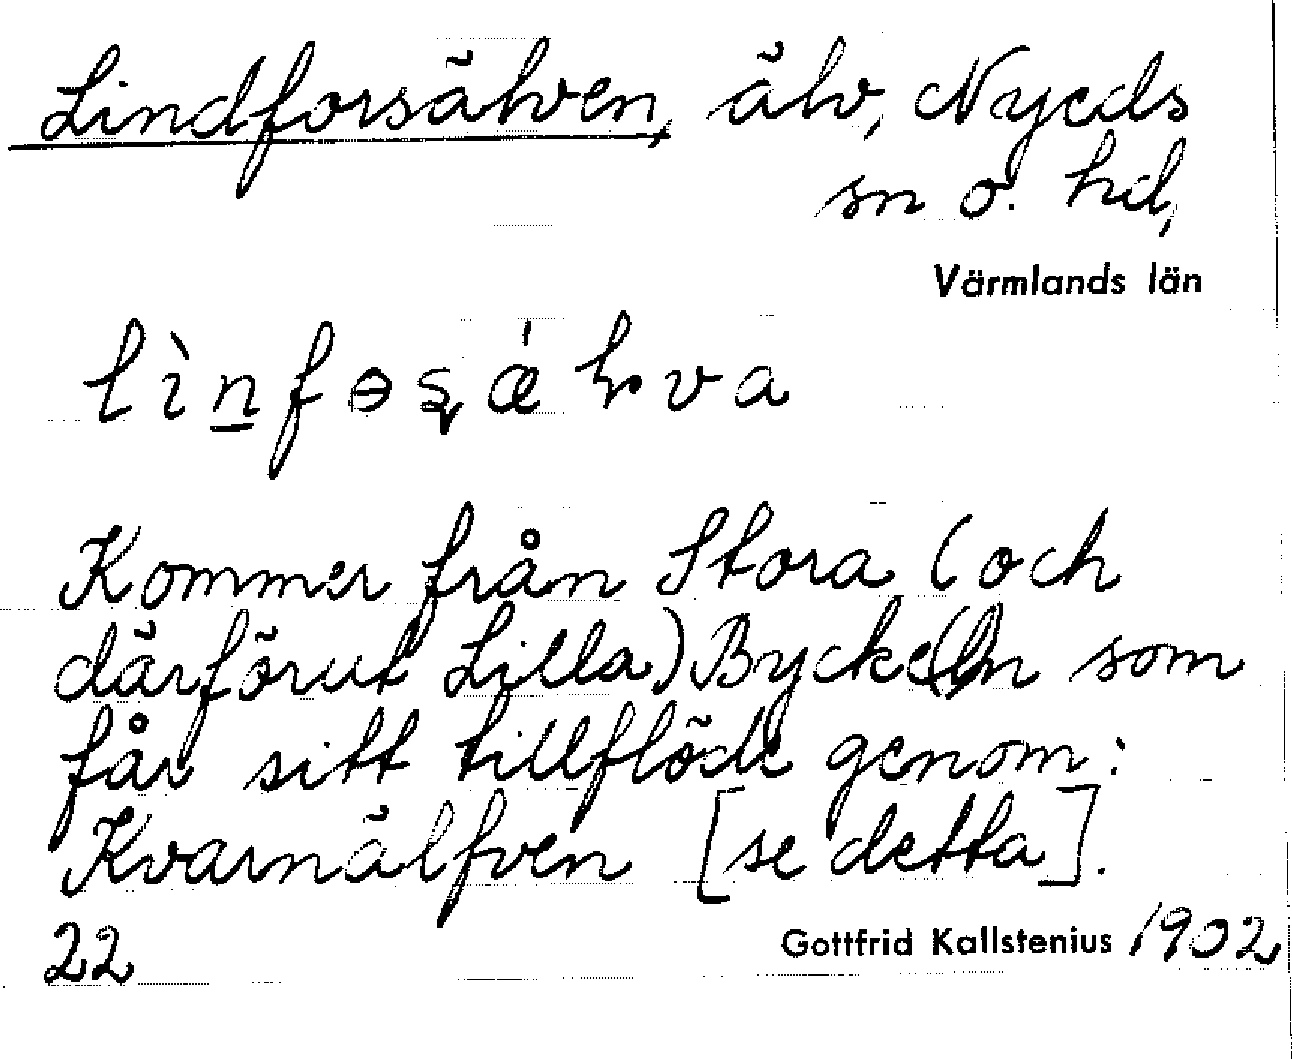 Lindforsälven, älv, Nyeds
sn o. hd,
Värmlands län
Kommer från Stora (och
därförut Lilla) Bycke(l)n som
får sitt tillflöde genom:
Kvarnälfven [se detta].
22
Gottfrid Kallstenius 1902